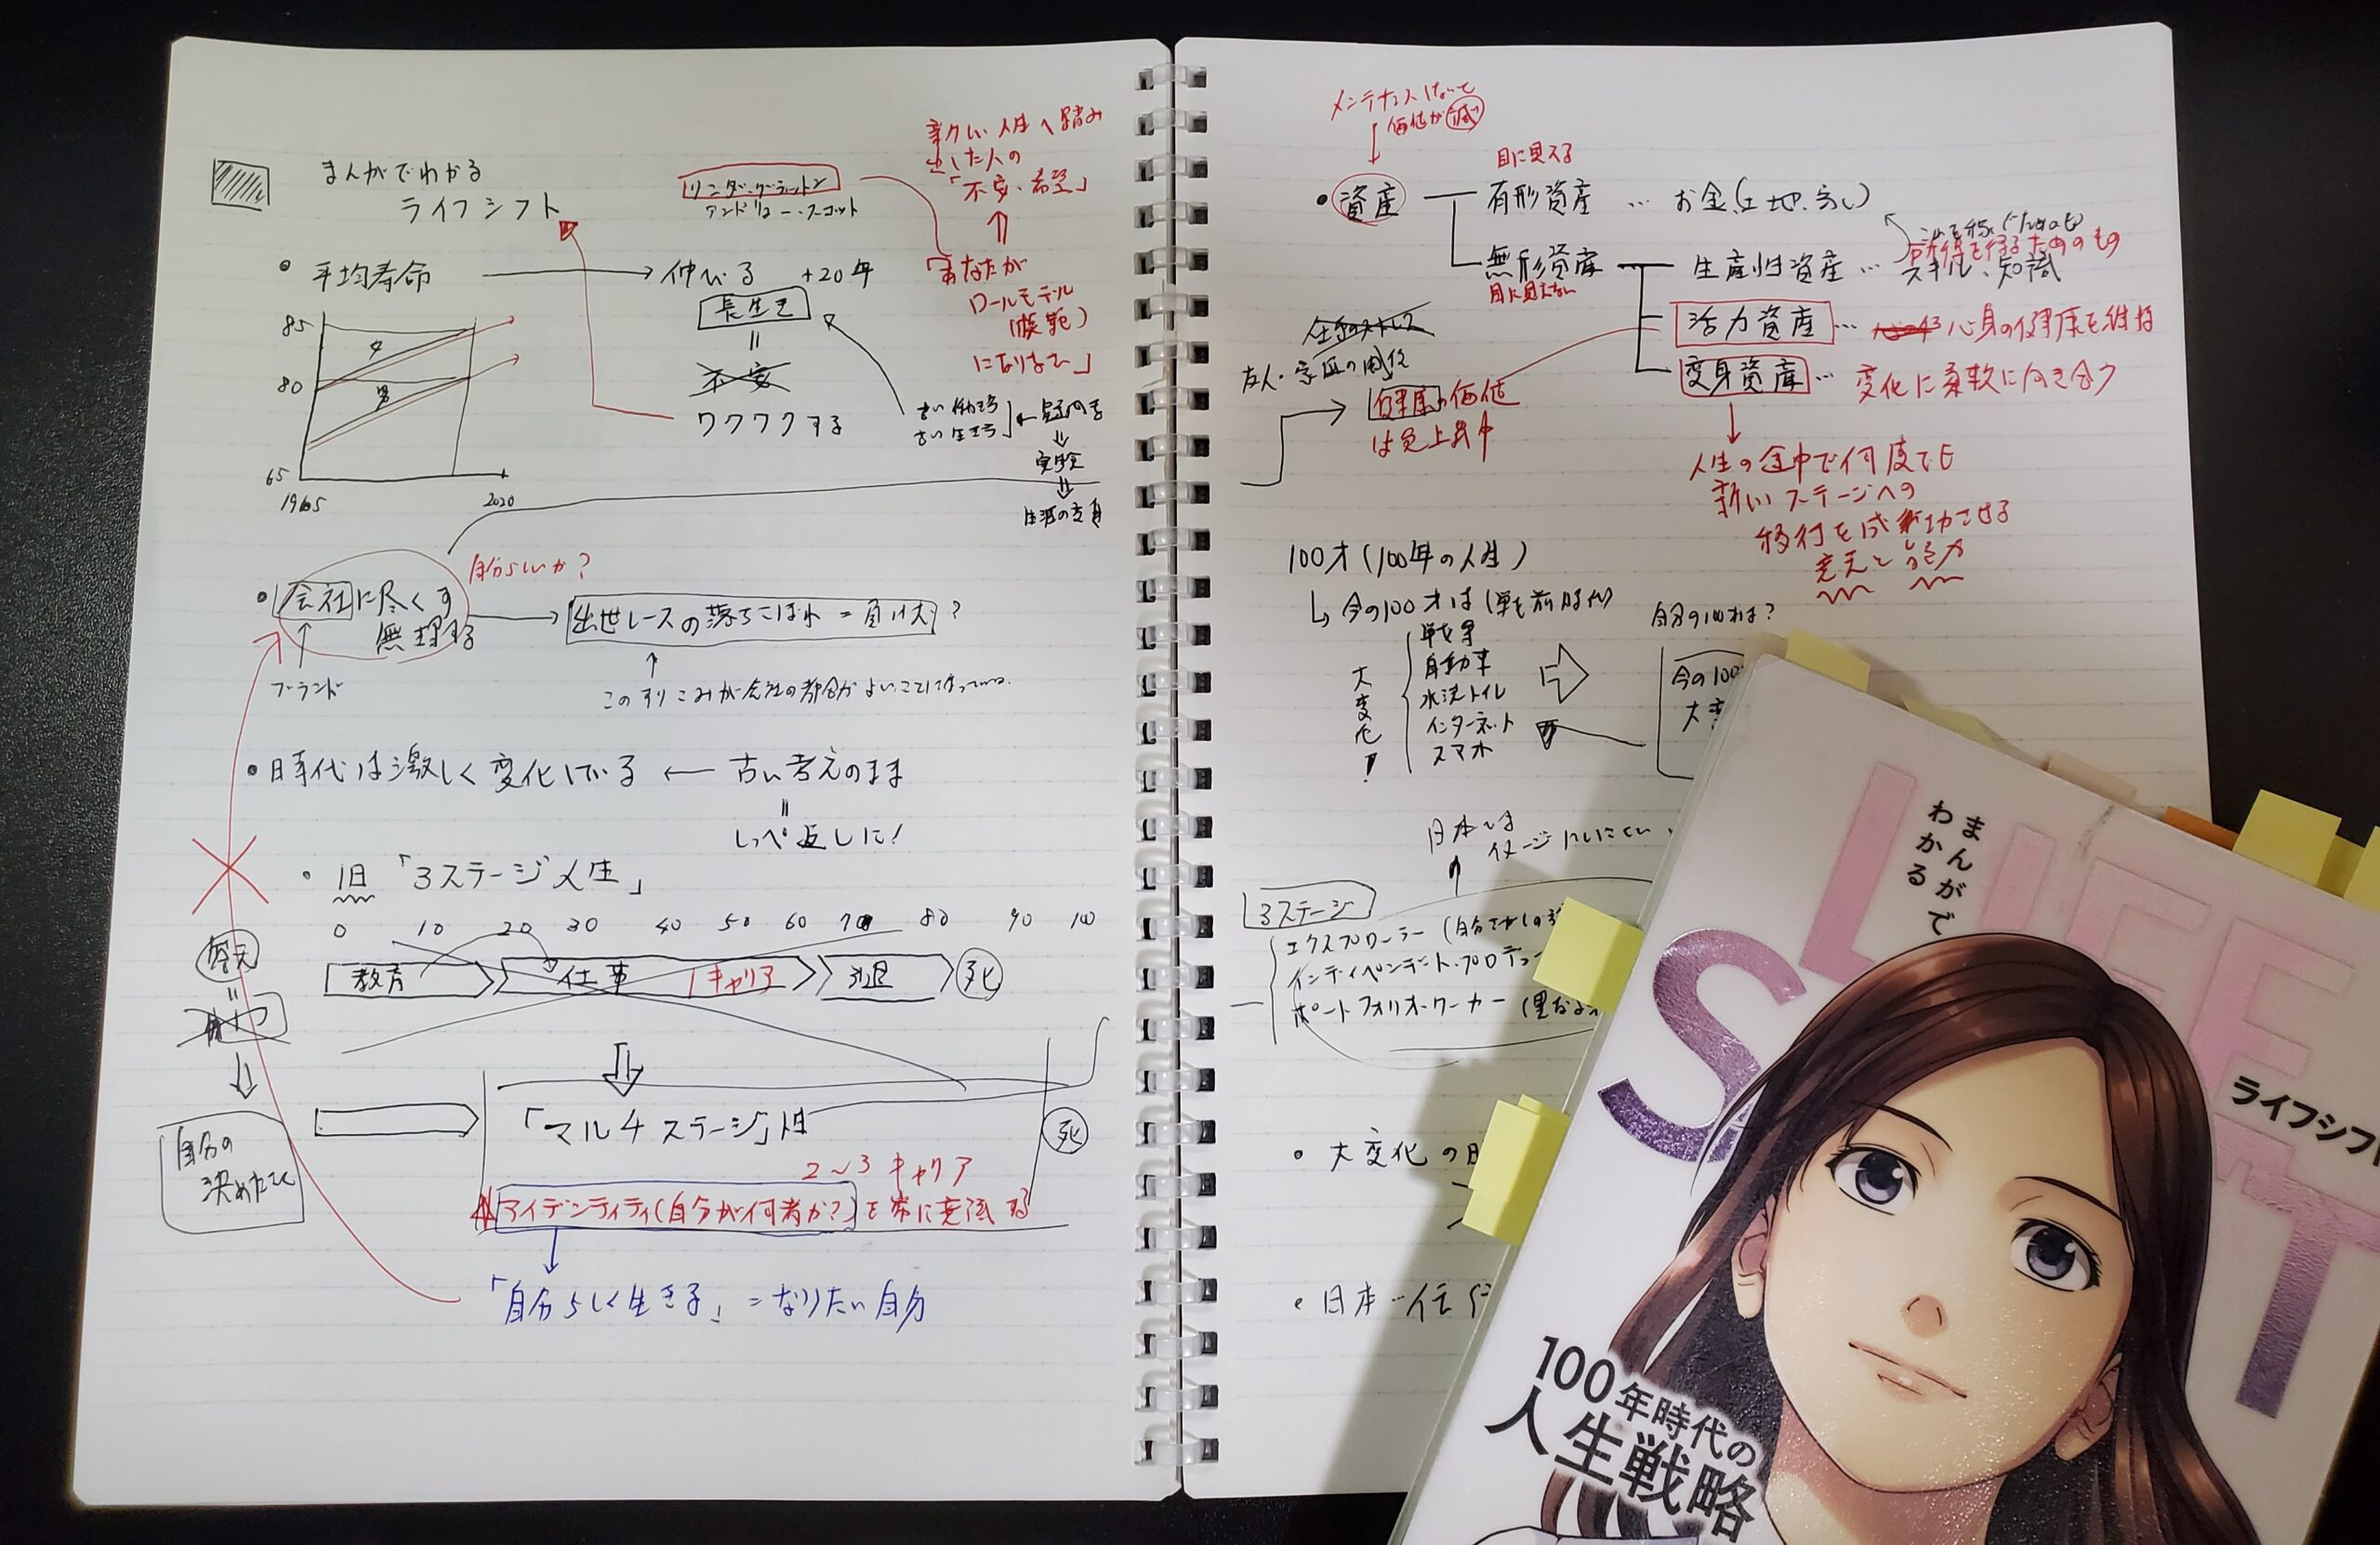 まんがでわかる
ライフシフト
リンダ・グラットン
アンドリュー・スコット
新しい人生へ踏み
出した人の
「不安・希望」
「あなたが
ロールモデル
(模範)
になりまで」
・平均寿命 → 伸びる +20年
長生き
=
不安
ワクワクする
古い働き方
古い生き方
実験
85
80
65
女
男
1965 2020
自分らしいか?
・会社に尽くす
無理する
出世レースの落ちこぼれ = 負け犬?
ブランド
このすりこみが会社の都合がよいことになっている.
・時代は激しく変化している ← 古い考えのまま
=
しっぺ返しに!
・旧「3ステージ人生」
0 10 20 30 40 50 60 70 80 90 100
教育 仕事 キャリア 引退 死
答え
=
自分の
決めたこと
「マルチステージ」
死
2〜3 キャリア
アイデンティティ(自分が何者か?)を常に意識する
「自分らしく生きる」=なりたい自分
メンテナンスしないと
価値が減
目に見える
・資産 有形資産 … お金(土地、家い)
無形資産 生産性資産 … スキル、知識
目に見えない
所得を得るためのもの
活力資産 … 心身の健康を維持
変身資産 … 変化に柔軟に向き合う
友人・家族の関係
健康の価値
は急上昇中
人生の途中で何度でも
新しいステージへの
移行を成功させる
意志と能力
100才(100年の人生)
今の100才は(戦前時代)
戦争
自動車
水洗トイレ
インターネット
スマホ
大変化!
自分の100才は?
今の100
大
日本は
イメージしにくい
3ステージ
エクスプローラー(自分さがしの
インディペンデント・プロデュー
ポートフォリオ・ワーカー(異なる
・大変化の
・日本
まんがで
わかる
LIFE
SHIFT
ライフシフ
100年時代の
人生戦略